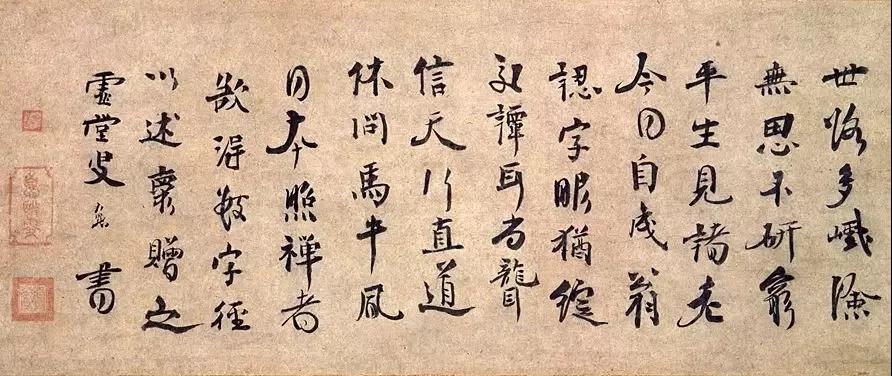 世路多巇嶮
無思不研窮
平生見諸老
今日自成翁
認字眼猶綻
交譚耳尚聾
信天行直道
休問馬牛風
日本照禪者
欲得數字徑
以述褱贈之
虛堂叟書